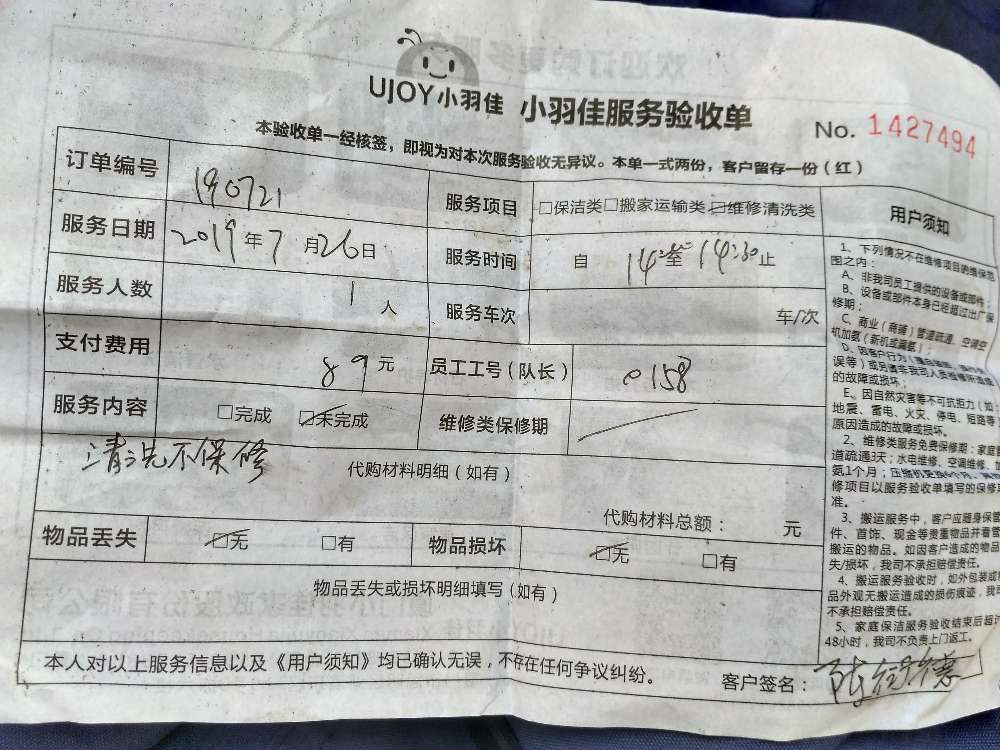 UJOY小羽佳 小羽佳服务验收单
No. 1427494
本验收单一经核签，即视为对本次服务验收无异议。本单一式两份，客户留存一份（红）
订单编号 190721 服务项目 □保洁类□搬家运输类☑维修清洗类
服务日期 2019年7月26日 服务时间 自 14: 至 14:30止
服务人数 1 人 服务车次 车/次
支付费用 89元 员工工号（队长） 0158
服务内容 □完成 ☑未完成 维修类保修期
清洗不保修
代购材料明细（如有）
代购材料总额： 元
物品丢失 ☑无 □有 物品损坏 ☑无 □有
物品丢失或损坏明细填写（如有）
本人对以上服务信息以及《用户须知》均已确认无误，不存在任何争议纠纷。
客户签名：
用户须知
1、下列情况不在维修项目的维保范
围之内：
A、非我司员工提供的设备或部件；
B、设备或部件本身已经超过出厂保
修期；
C、商业（商铺）管道疏通，空调空
机加氨（新机或漏氨）；
D、因客户行为
误等）或另请非我司人员维修所造成
的故障或损坏；
E、因自然灾害等不可抗拒力（如
地震、雷电、火灾、停电、短路等
原因造成的故障或损坏。
2、维修类服务免费保修期：家庭管
道疏通3天；水电维修、空调维修、加
氨1个月；压缩机更换6个月。其他
修项目以服务验收单填写的保修期
准。
3、搬运服务中，客户应随身保管
件、首饰、现金等贵重物品并看管
搬运的物品。如因客户造成的物品
失/损坏，我司不承担赔偿责任。
4、搬运服务验收时，如外包装或
品外观无搬运造成的损伤痕迹，我司
不承担赔偿责任。
5、家庭保洁服务验收结束后超过
48小时，我司不负责上门返工。